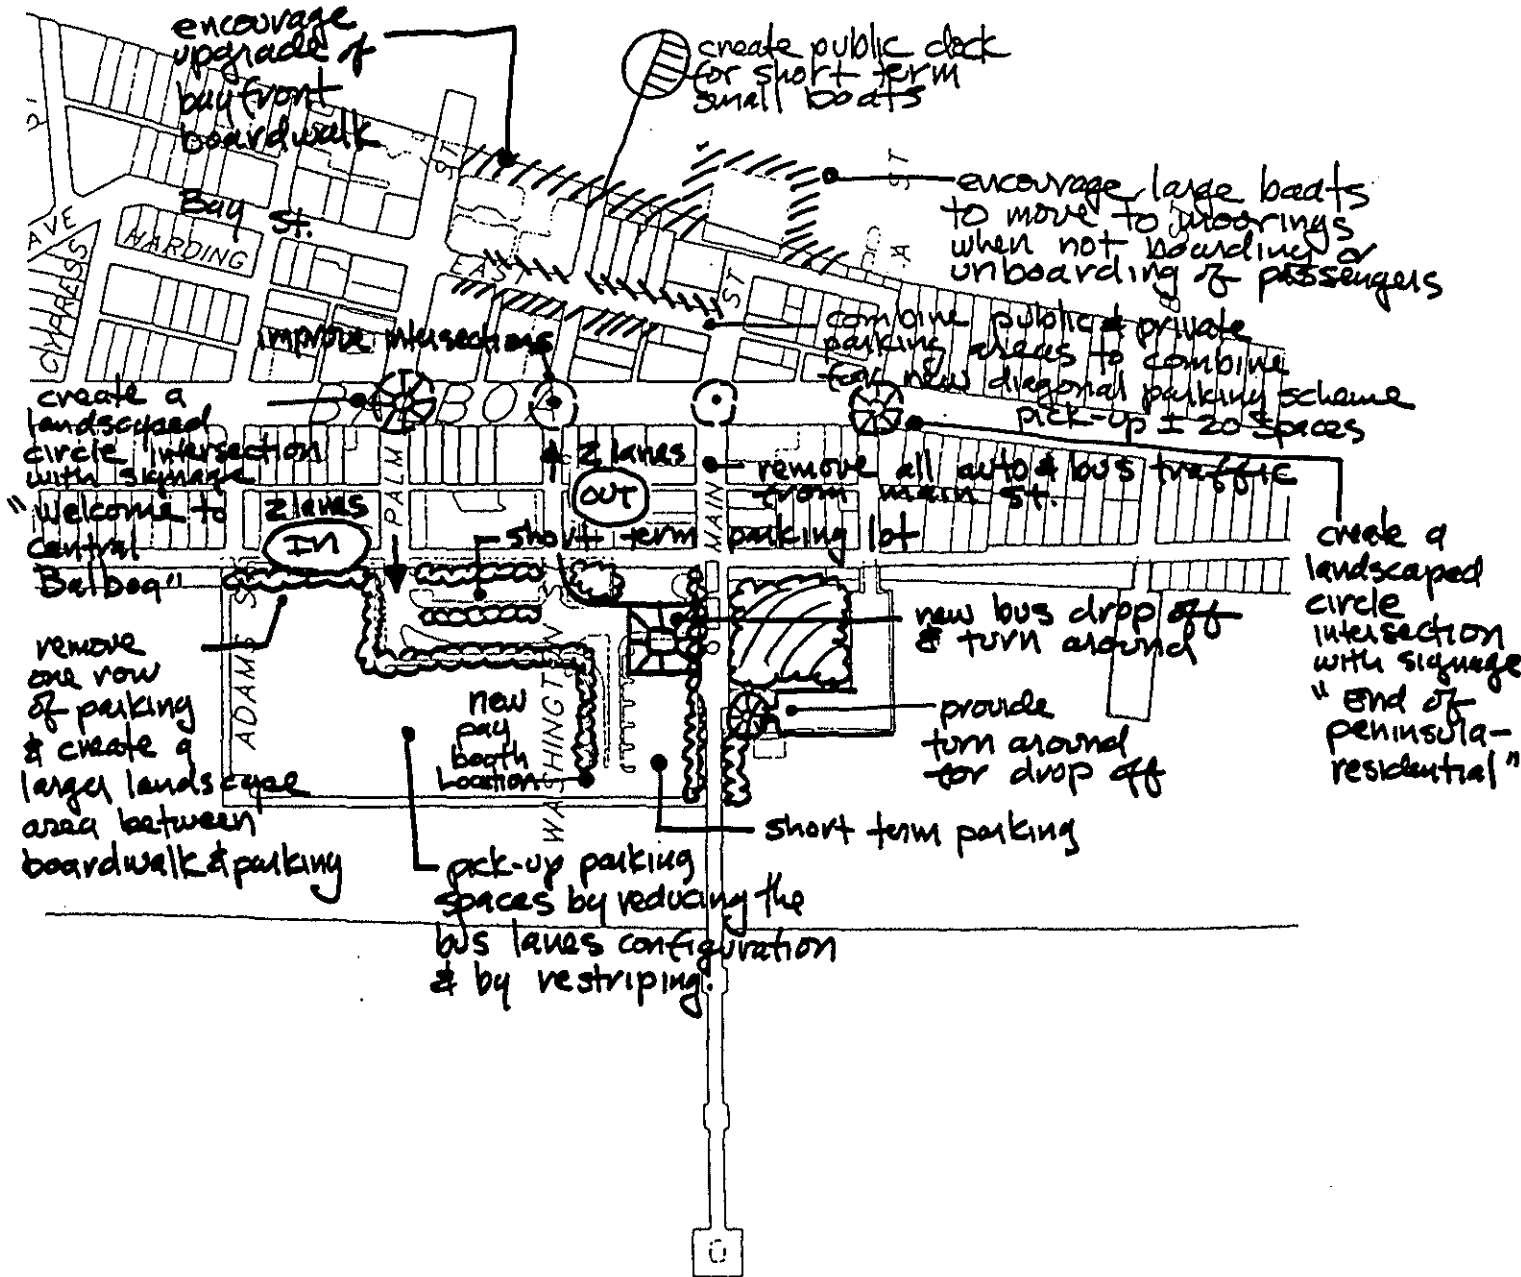 encourage
upgrade of
bayfront
boardwalk
create public dock
for short term
small boats
encourage large boats
to move to moorings
when not boarding or
unboarding of passengers
Bay St.
AVE
HARDING
CYPRESS
ST
EAST
ST
A ST
B
combine public & private
parking areas to combine
for new diagonal parking scheme
pick-up ± 20 spaces
improve intersections
BALBOA
create a
landscaped
circle intersection
with signage
"welcome to
central
Balboa"
2 lanes
IN
PALM
2 lanes
OUT
MAIN
remove all auto & bus traffic
from main st.
short term parking lot
create a
landscaped
circle
intersection
with signage
"end of
peninsula-
residential"
new bus drop off
& turn around
remove
one row
of parking
& create a
larger landscape
area between
boardwalk & parking
ADAMS
WASHINGTON
new
pay
booth
location
provide
turn around
for drop off
short term parking
pick-up parking
spaces by reducing the
bus lanes configuration
& by restriping.